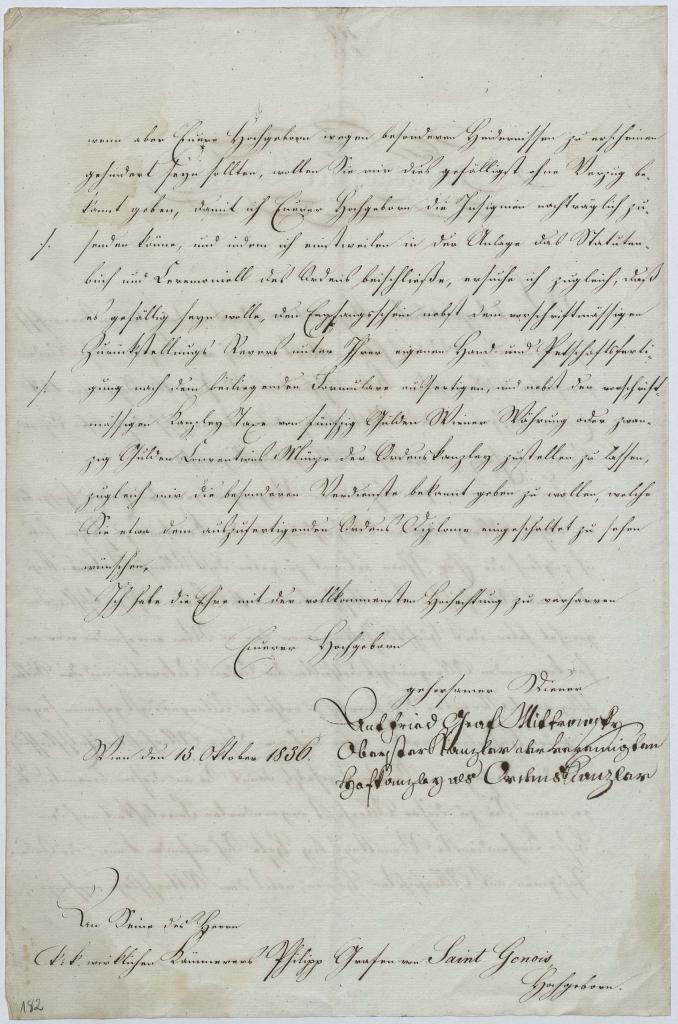 wenn aber Euere Hochgeborn wegen besonderen Hindernissen zu erscheinen
gehindert seyn sollten, wollen Sie mir dies gefälligst ohne Verzug be-
kannt geben, damit ich Euerer Hochgeborn die Insignien nachträglich zu-
./. senden könne, und indem ich einstweilen in der Anlage das Statuten-
buch und Ceremoniell des Ordens beischließe, ersuche ich zugleich, daß
es gefällig seyn wolle, den Empfangsschein nebst dem vorschriftmässigen
Zurückstellungs Revers unter Ihrer eigenen Hand- und Petschaftsferti-
./. gung nach dem beiliegenden Formulare ausfertigen, und nebst der vorschrift-
mässigen Kanzley Taxe von fünfzig Gulden Wiener Währung oder zwan-
zig Gulden Conventions Münze der Ordenskanzley zustellen zu lassen,
zugleich mir die besonderen Verdienste bekannt geben zu wollen, welche
Sie etwa dem auszufertigenden Ordens Diplome eingeschaltet zu sehen
wünschen.
Ich habe die Ehre mit der vollkommensten Hochachtung zu verharren
Euerer Hochgeborn
gehorsamer Diener
Antfried Graf Mittrowsky
Wien den 15. Oktober 1836.
Oberster Kanzler der vereinigten
Hofkanzley als Ordens Kanzler
An Seine des Herrn
k: k. wirklichen Kämmerers Philipp Grafen von Saint Genois
Hochgeborn.
182